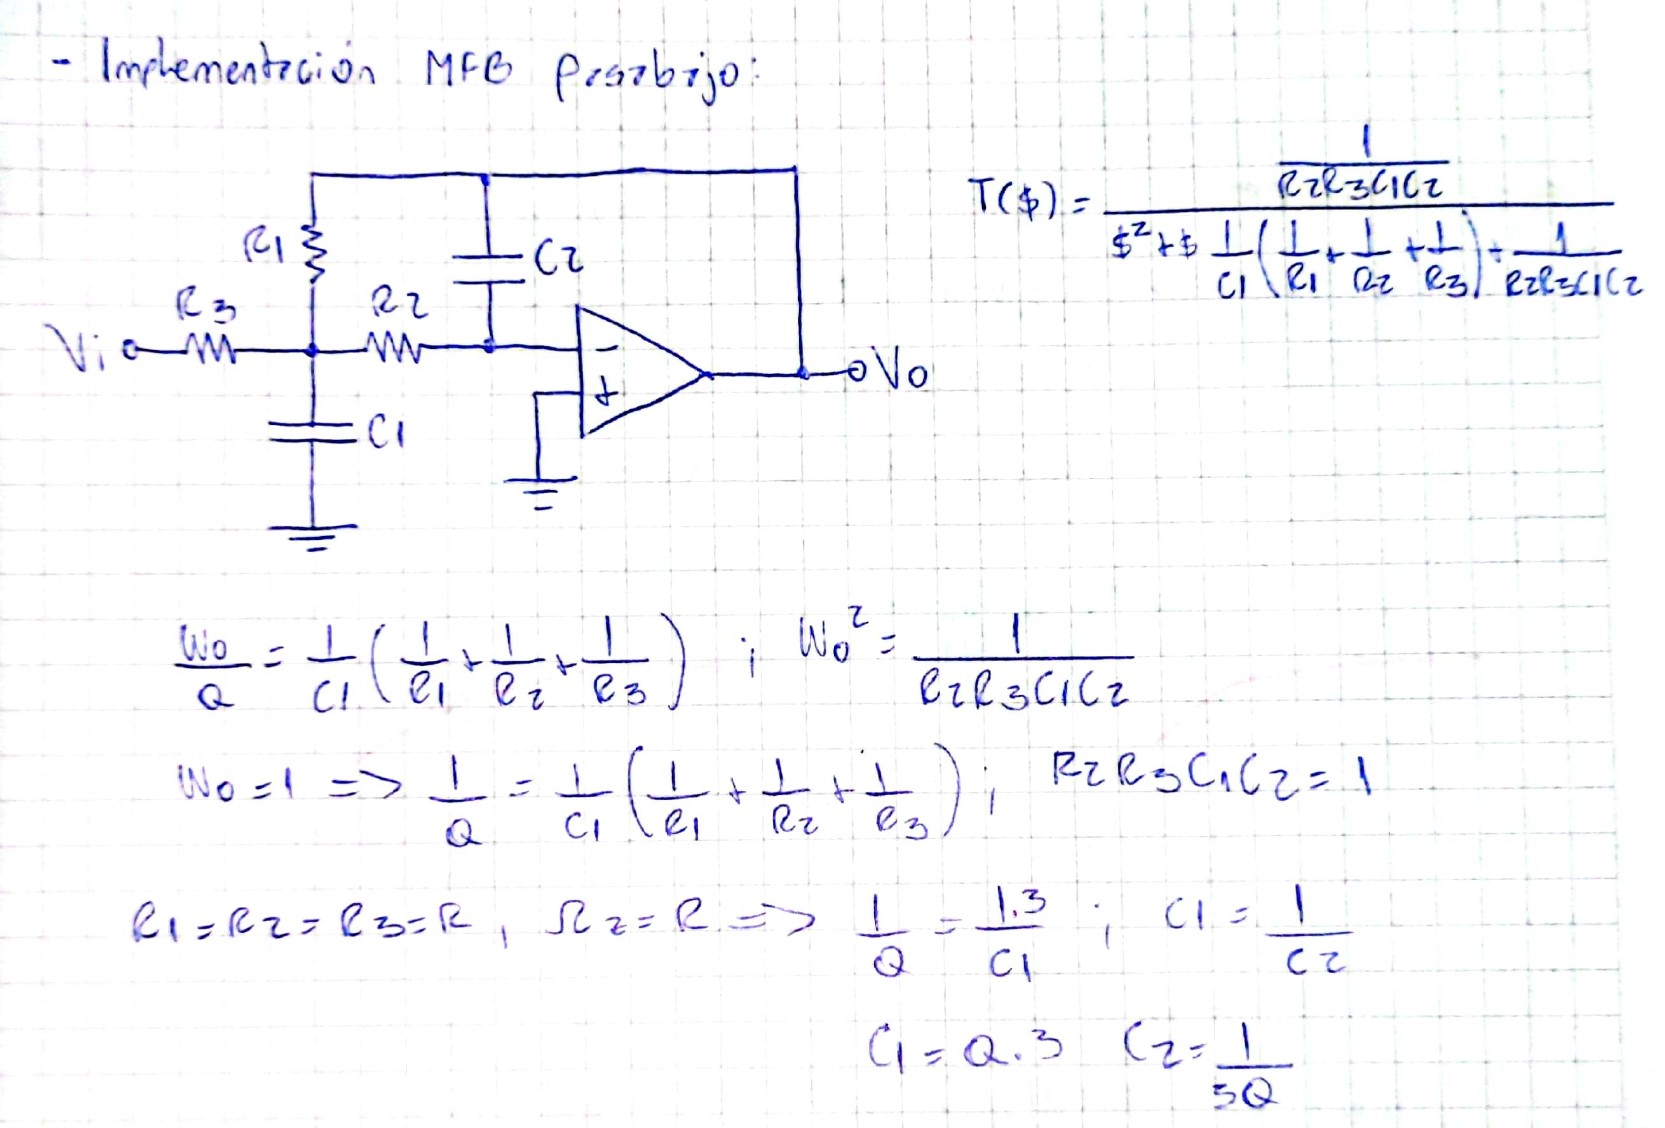 - Implementación MFB pasabajo:
T($) = (1/(R2R3C1C2)) / ($² + $ 1/C1 (1/R1 + 1/R2 + 1/R3) + 1/(R2R3C1C2))
R1
C2
R3
R2
Vi
-
+
Vo
C1
Wo/Q = 1/C1 (1/R1 + 1/R2 + 1/R3) ; Wo² = 1/(R2R3C1C2)
Wo = 1 => 1/Q = 1/C1 (1/R1 + 1/R2 + 1/R3) ; R2R3C1C2 = 1
R1 = R2 = R3 = R , Ωz = R => 1/Q = 1.3/C1 ; C1 = 1/C2
C1 = Q.3 C2 = 1/3Q